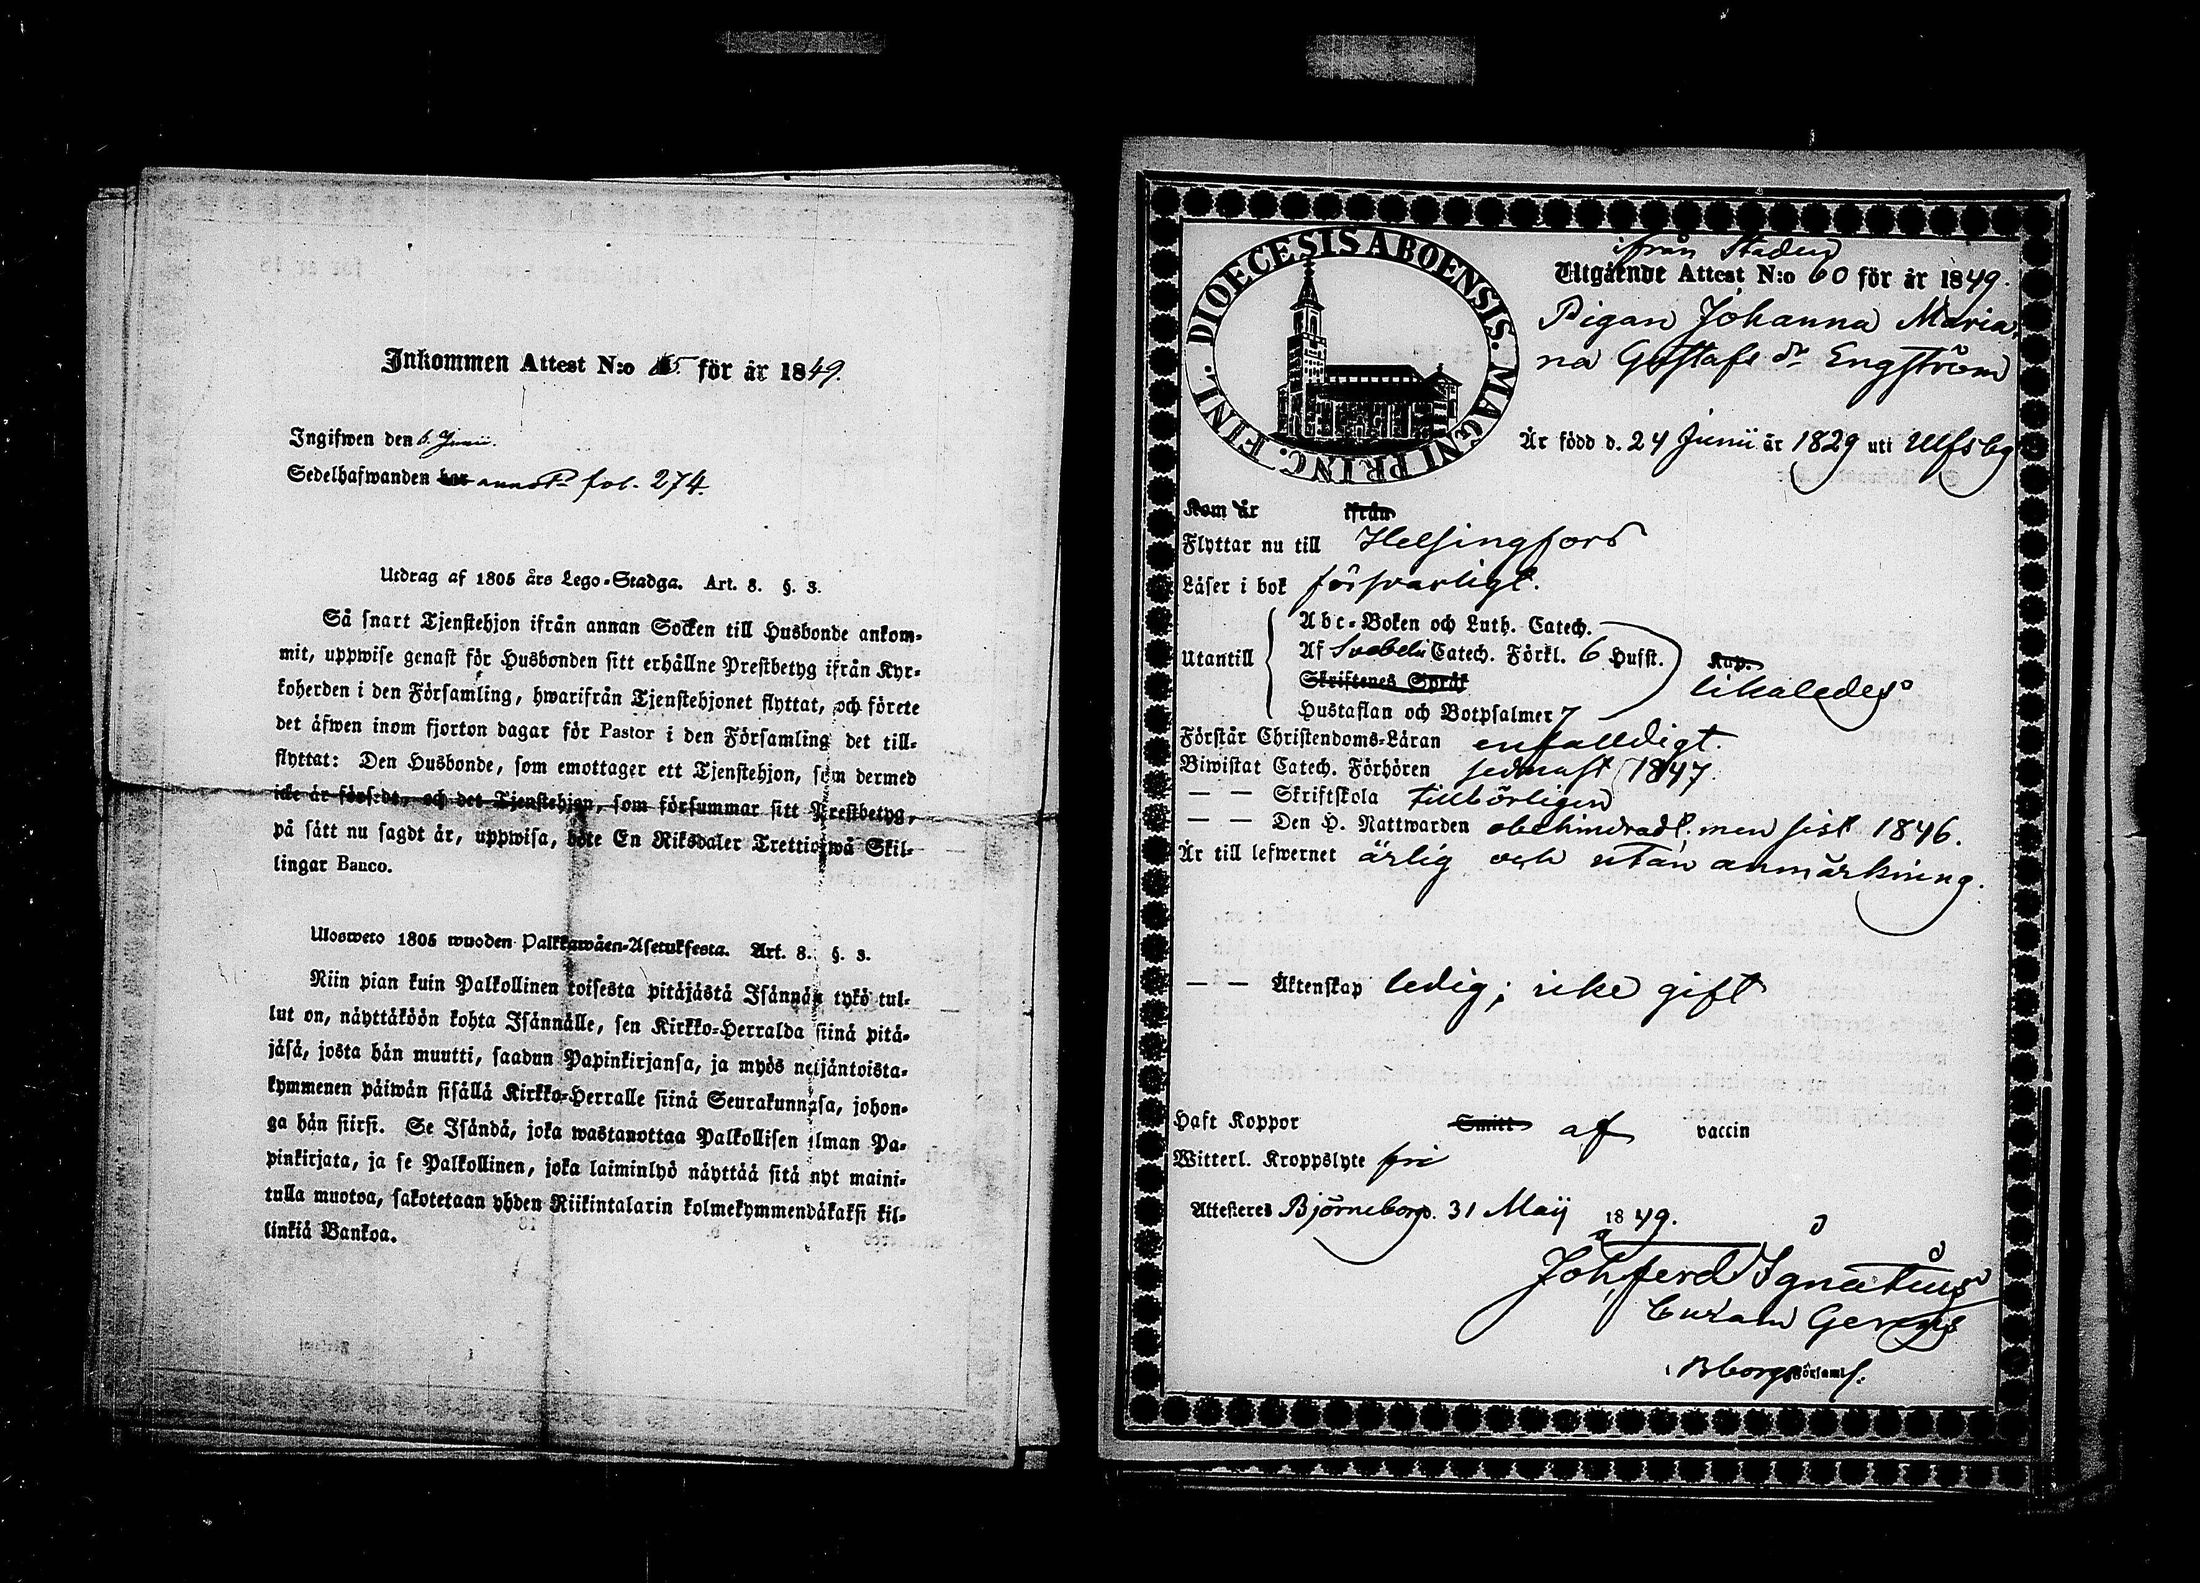 Inkommen Attest N:o 15. för år 1849.
Ingifwen den 6. Junii.
Sedelhafwanden har annot. fol. 274.
Utdrag af 1805 års Lego-Stadga. Art. 8. §. 3.
Så snart Tjenstehjon ifrån annan Socken till Husbonde ankom-
mit, uppwise genast för Husbonden sitt erhållne Prestbetyg ifrån Kyr-
koherden i den Församling, hwarifrån Tjenstehjonet flyttat, och förete
det äfwen inom fjorton dagar för Pastor i den Församling det till-
flyttat: Den Husbonde, som emottager ett Tjenstehjon, som dermed
icke är försedt, och det Tjenstehjon, som försummar sitt Prestbetyg,
på sätt nu sagdt är, uppwisa, böte En Riksdaler Trettiotwå Skil-
lingar Banco.
Ulosweto 1805 wuoden Palkkawäen-Asetuksesta. Art. 8. §. 3.
Niin pian kuin Palkollinen toisesta pitäjästä Isännän tykö tul-
lut on, näyttäköön kohta Isännälle, sen Kirkko-Herralda siinä pitä-
jäsä, josta hän muutti, saadun Papinkirjansa, ja myös neljäntoista-
kymmenen päiwän sisällä Kirkko-Herralle siinä Seurakunnasa, johon-
ga hän siirsi. Se Isändä, joka wastanottaa Palkollisen ilman Pa-
pinkirjata, ja se Palkollinen, joka laiminlyö näyttää sitä nyt maini-
tulla muotoa, sakotetaan yhden Riikintalarin kolmekymmendäkaksi kil-
linkiä Bankoa.
DIOECESIS ABOENSIS. MAGNI PRINC. FINL.
ifrån Staden
Utgående Attest N:o 60 för år 1849.
Pigan Johanna Maria
na Gustafs dr Engström
Är född d. 24 Junii år 1829 uti Ulfsby
Kom år ifrån
Flyttar nu till Helsingfors
Läser i bok försvarligt.
Abc-Boken och Luth. Catech.
Utantill Af Svebelii Catech. Förkl. 6 Hufst. Kap.
Skriftenes Språk likaledes
Hustaflan och Botpsalmer 7
Förstår Christendoms-Läran enfalldigt.
Biwistat Catech. Förhören sednast 1847.
— — Skriftskola tillbörligen
— — Den H. Nattwarden obehindradt. men sist 1846.
Är till lefwernet ärlig och utan anmärkning.
— — Äktenskap ledig; icke gift
Haft Koppor Smitt af vaccin
Witterl. Kroppslyte fri
Attesteres Björneborg. 31 Maij 1849.
Joh ferd Ignatius
Curam Gerens
i Bborgs Församl.